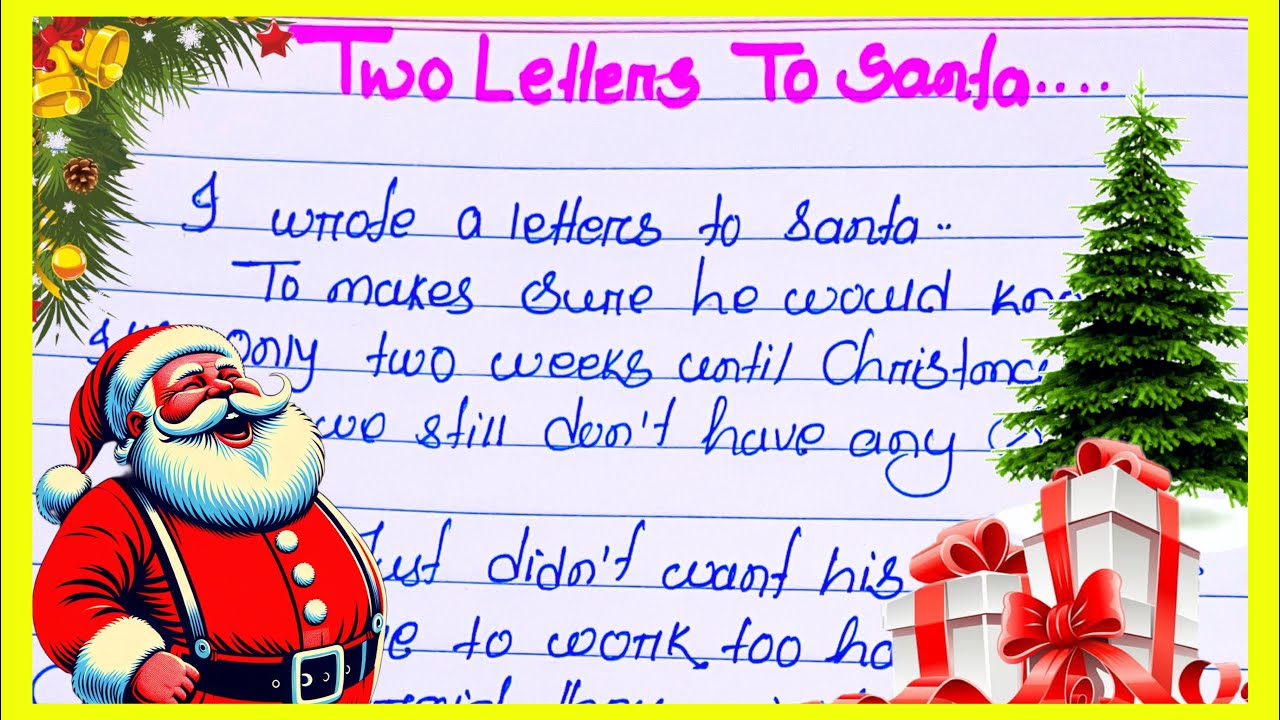 Two Letters To Santa....
I wrote a letters to santa..
To makes sure he would
only two weeks until
we still don't have any
didn't want his
to work too